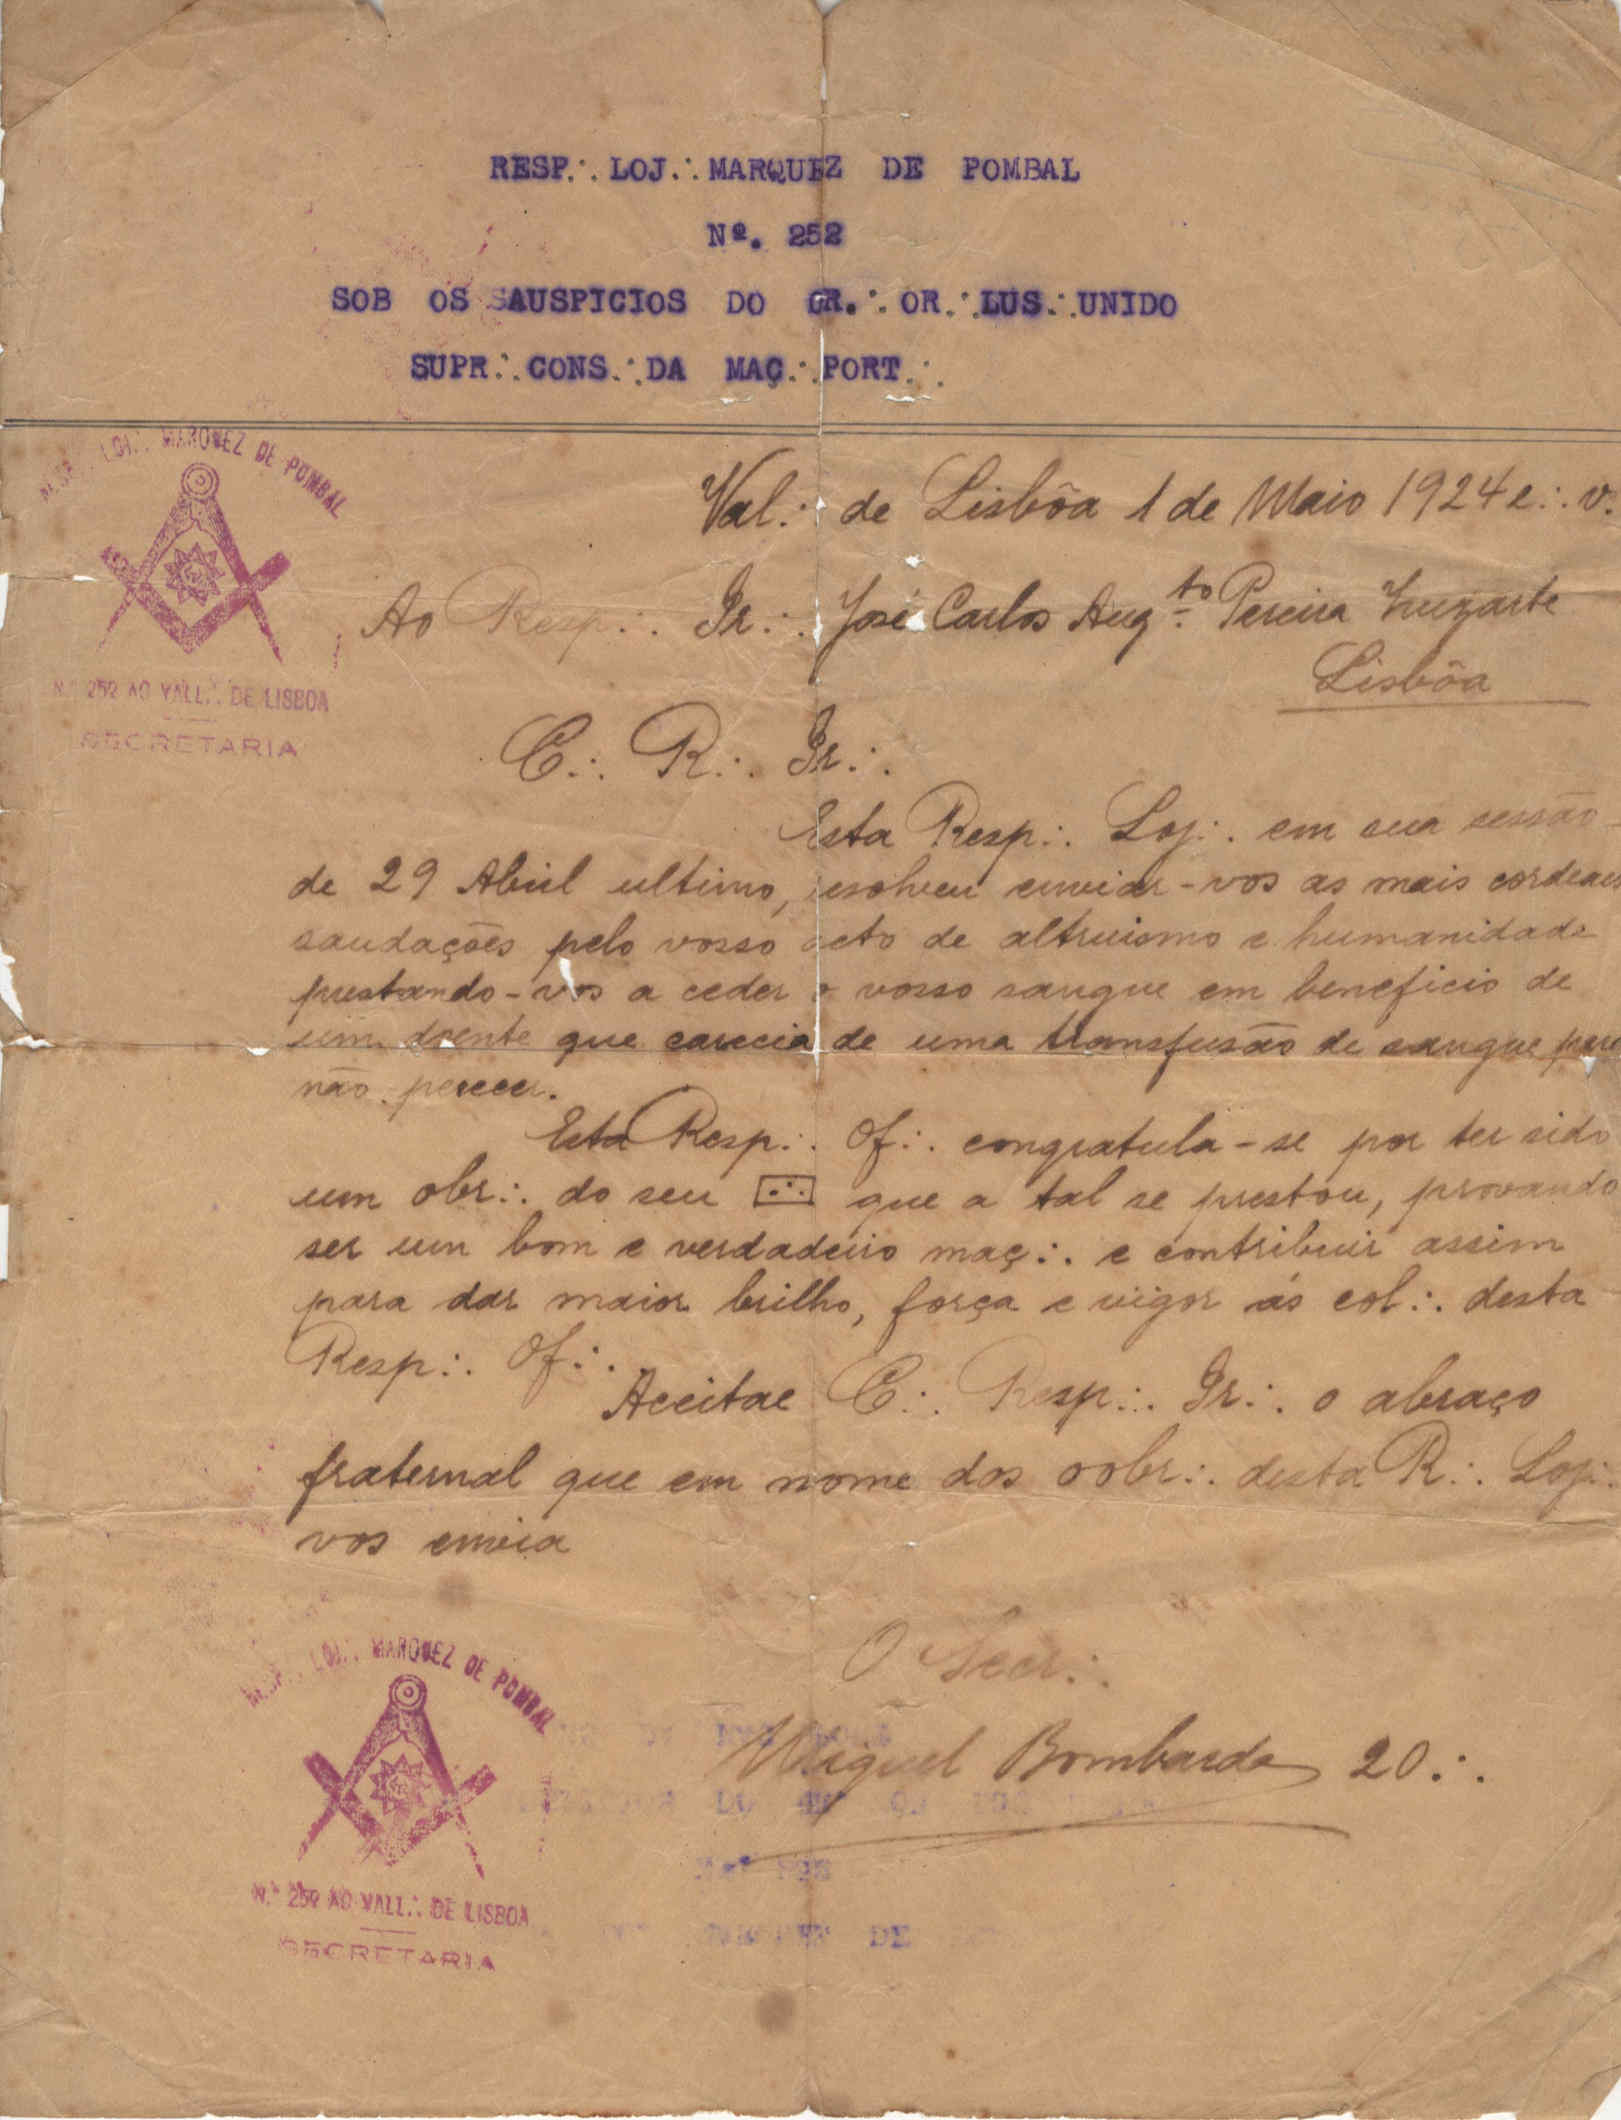 RESP.∴ LOJ.∴ MARQUEZ DE POMBAL
Nº. 252
SOB OS AUSPICIOS DO GR.∴ OR.∴ LUS.∴ UNIDO
SUPR.∴ CONS.∴ DA MAÇ.∴ PORT.∴
RESP∴ LOJ∴ MARQUEZ DE POMBAL
Nº 252 AO VALL∴ DE LISBOA
SECRETARIA
Val∴ de Lisbôa 1 de Maio 1924 e∴ v.
Ao Resp∴ Ir∴ José Carlos Aug.to Pereira Luzarte
Lisbôa
C∴ R∴ Ir∴
Esta Resp∴ Loj∴ em sua sessão
de 29 Abril ultimo, resolveu enviar-vos as mais cordeaes
saudações pelo vosso acto de altruismo e humanidade
prestando-vos a ceder o vosso sangue em beneficio de
um doente que carecia de uma transfusão de sangue para
não perecer.
Esta Resp∴ Of∴ congratula-se por ter sido
um obr∴ do seu ∴ que a tal se prestou, provando
ser um bom e verdadeiro maç∴ e contribuir assim
para dar maior brilho, força e vigor ás col∴ desta
Resp∴ Of∴
Aceitae C∴ Resp∴ Ir∴ o abraço
fraternal que em nome dos oobr∴ desta R∴ Loj∴
vos envia
O Secr∴
Miguel Bombarda 20∴
RESP∴ LOJ∴ MARQUEZ DE POMBAL
N.º 252 AO VALL∴ DE LISBOA
SECRETARIA